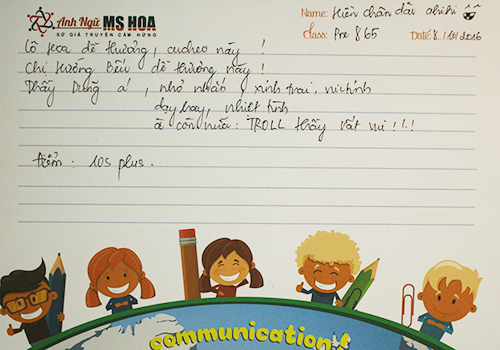 Anh Ngữ MS HOA
SỨ GIẢ TRUYỀN CẢM HỨNG
Name: Hiền chân dài ahihi
Class: Pre 865
Date: 8/11/2016
Cô Hoa dễ thương, cudreo này !
Chị Hương Béu dễ thương này !
Thầy Dũng á, nhỏ nhắn, xinh trai, nữ tính
dạy hay, nhiệt tình
à còn nữa: TROLL thầy rất vui !!!
điểm: 10s plus.
communication